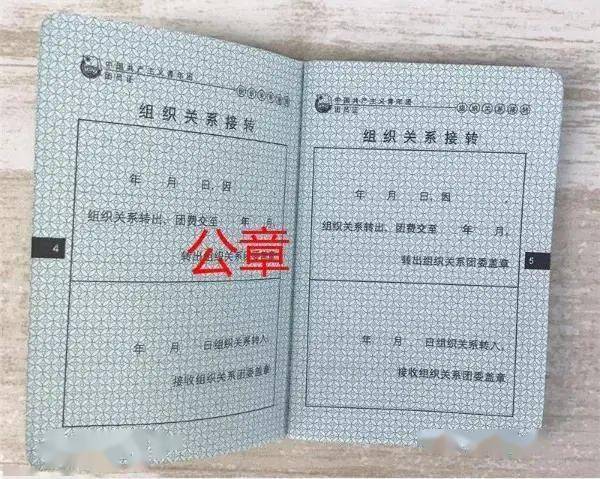 中国共产主义青年团
团员证
组织关系接转
年 月 日,因
组织关系转出、团费交至 年 月,
公章
转出组织关系团委盖章
4
年 月 日组织关系转入,
接收组织关系团委盖章
中国共产主义青年团
团员证
组织关系接转
组织关系接转
年 月 日,因
组织关系转出、团费交至 年 月,
转出组织关系团委盖章
5
年 月 日组织关系转入,
接收组织关系团委盖章